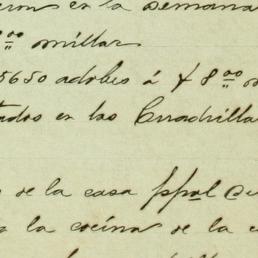 en la semana
8 00 millar
5650 adobes á $ 8 00
en las Cuadrilla
de la casa ppal
la cocina de la